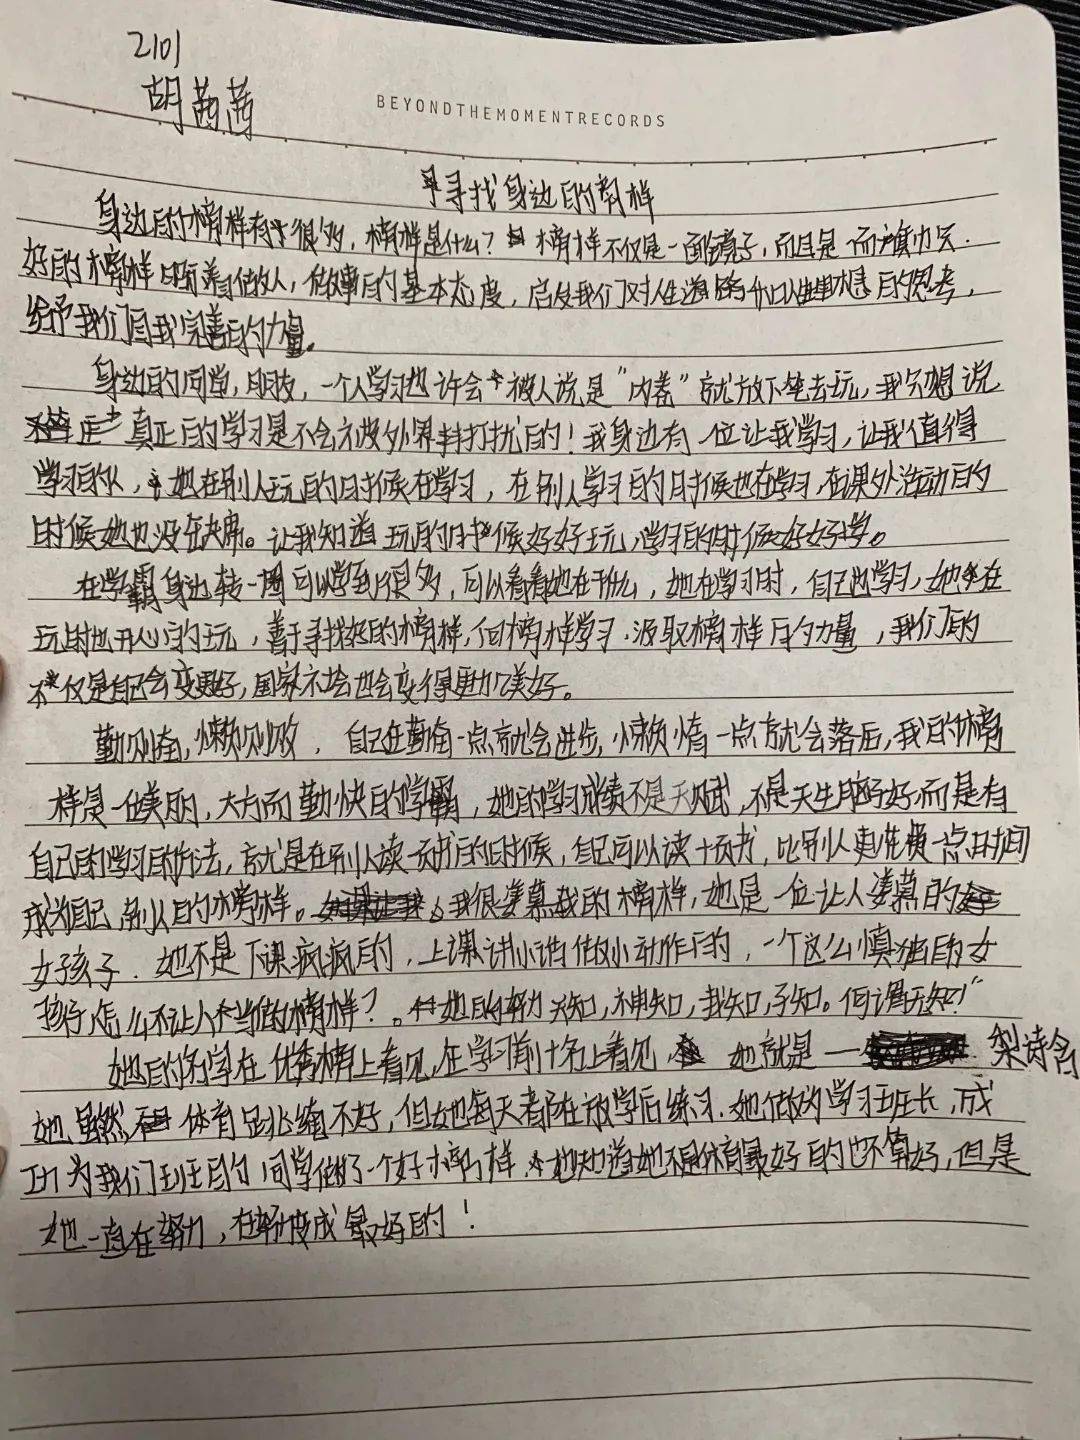 2101
胡茜茜
BEYONDTHEMOMENTRECORDS
寻找身边的榜样
身边的榜样有很多，榜样是什么？榜样不仅是一面镜子，而且是一面旗帜.
好的榜样 着做人，做事的基本态度，启发我们对人生道路和人生理想的思考，
给予我们自我完善的力量。
身边的同学，朋友，一个人学习也许会被人说是“内卷”就放下笔去玩，我只想说
真正的学习是不会被外界打扰的！我身边有一位让我学习，让我值得
学习的人，她在别人玩的时候在学习，在别人学习的时候也在学习，在课外活动的
时候她也没缺席。让我知道玩的时候好好玩，学习的时候好好学。
在学霸身边转一圈可以学到很多，可以看看她在干什么，她在学习时，自己也学习，她在
玩时也开心的玩，善于寻找好的榜样，向榜样学习，汲取榜样的力量，我们的
不仅是自己会变更好，国家社会也会变得更加美好。
勤则奋，懒则败，自己在勤奋一点就会进步，懒惰一点就会落后，我的榜
样是一位美丽，大方而勤快的学霸，她的学习成绩不是天赋，不是天生脑子好而是有
自己的学习的方法，就是在别人读一页书的时候，自己可以读十页书，比别人更浪费一点时间
成为自己，别人的榜样。我很羡慕我的榜样，她是一位让人羡慕的
女孩子.她不是下课疯疯的，上课讲小话做小动作的，一个这么慎独的女
孩子怎么不让人当做榜样？她的努力天知，神知，我知，子知。何谓无知！”
她的名字在优秀榜上看见，在学习前十名上看见，她就是一 梨诗名
她虽然体育跳绳不好，但她每天都在放学后练习.她做为学习班长，成
功为我们班的同学做了一个好榜样，她知道她不是体育最好的也不算好，但是
她一直在努力，在努力变成最好的！